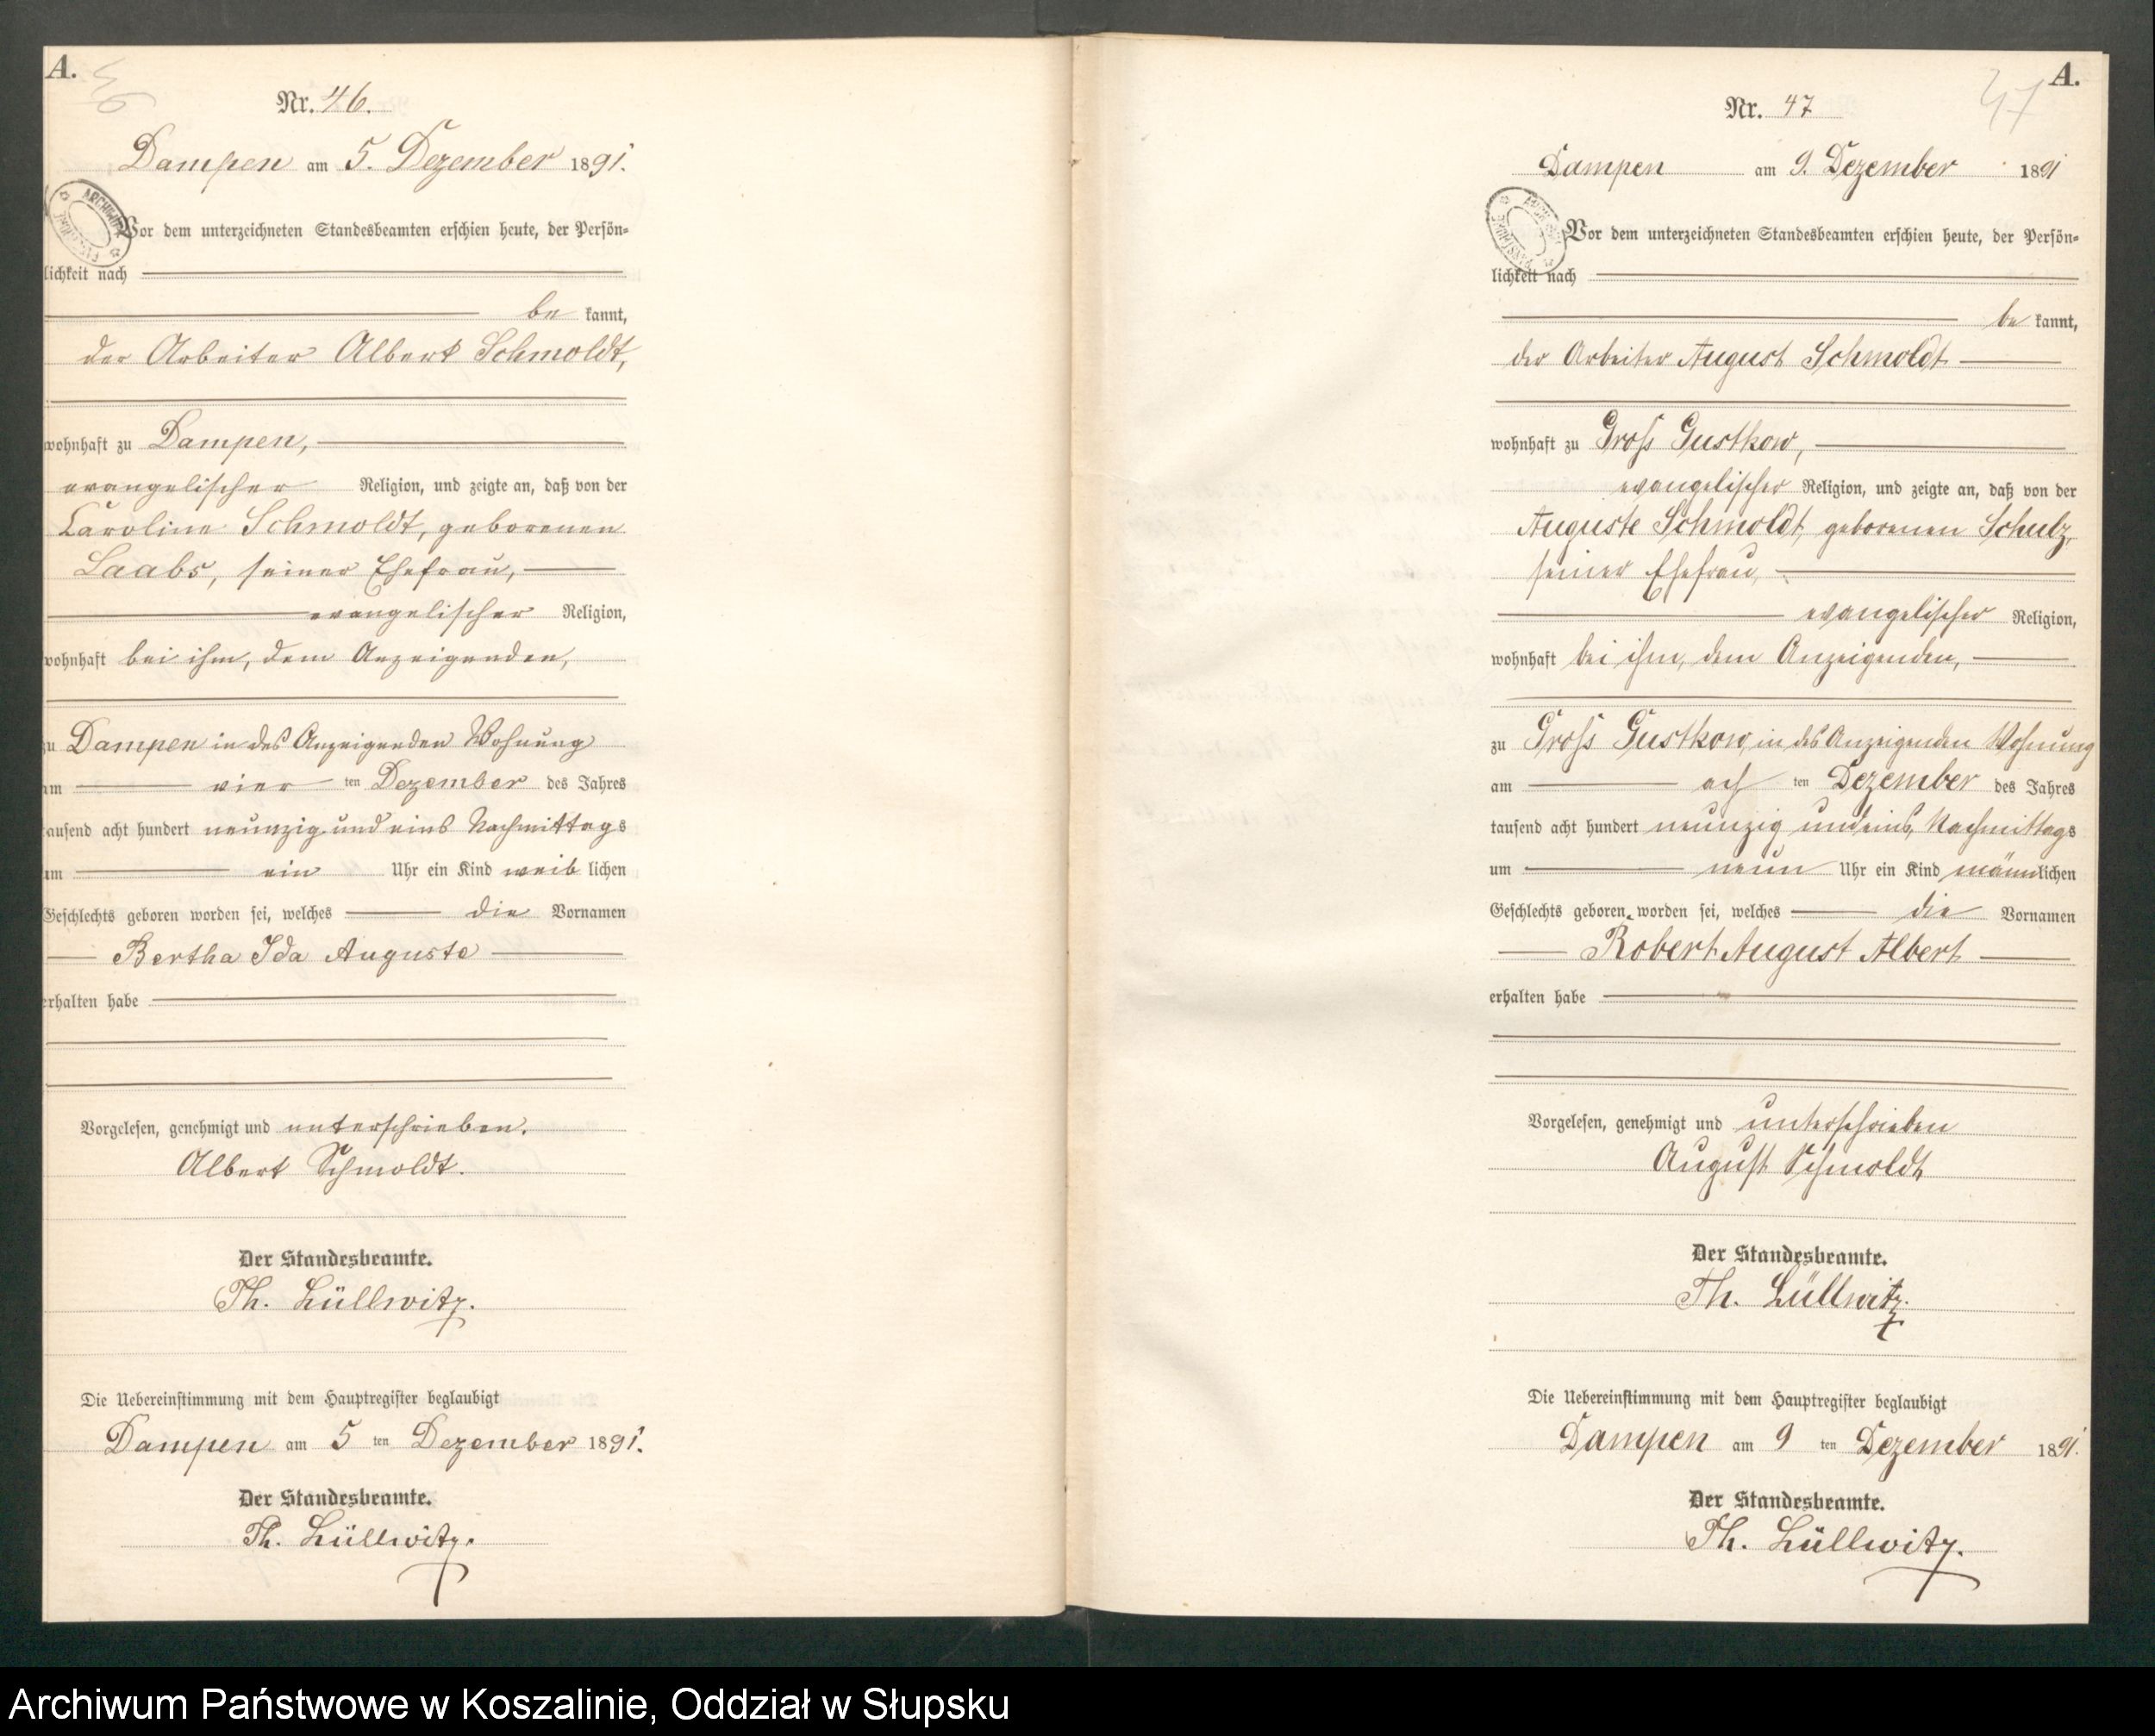 A.
46
Nr. 46.
Dampen am 5. Dezember 1891.
Vor dem unterzeichneten Standesbeamten erschien heute, der Persön-
lichkeit nach
be kannt,
der Arbeiter Albert Schmoldt,
wohnhaft zu Dampen,
evangelischer Religion, und zeigte an, daß von der
Caroline Schmoldt, geborenen
Laabs, seiner Ehefrau,
evangelischer Religion,
wohnhaft bei ihm, dem Anzeigenden,
zu Dampen in des Anzeigenden Wohnung
am vier ten Dezember des Jahres
tausend acht hundert neunzig und eins Nachmittags
um ein Uhr ein Kind weib lichen
Geschlechts geboren worden sei, welches die Vornamen
Bertha Ida Auguste
erhalten habe
Vorgelesen, genehmigt und unterschrieben.
Albert Schmoldt.
Der Standesbeamte.
Th. Lüllwitz.
Die Uebereinstimmung mit dem Hauptregister beglaubigt
Dampen am 5 ten Dezember 1891.
Der Standesbeamte.
Th. Lüllwitz.
A.
47
Nr. 47
Dampen am 9. Dezember 1891
Vor dem unterzeichneten Standesbeamten erschien heute, der Persön-
lichkeit nach
be kannt,
der Arbeiter August Schmoldt
wohnhaft zu Gross Gustkow,
evangelischer Religion, und zeigte an, daß von der
Auguste Schmoldt, geborenen Schulz,
seiner Ehefrau,
evangelischer Religion,
wohnhaft bei ihm, dem Anzeigenden,
zu Gross Gustkow, in des Anzeigenden Wohnung
am ach ten Dezember des Jahres
tausend acht hundert neunzig und eins, Nachmittags
um neun Uhr ein Kind männlichen
Geschlechts geboren worden sei, welches die Vornamen
Robert August Albert
erhalten habe
Vorgelesen, genehmigt und unterschrieben
August Schmoldt
Der Standesbeamte.
Th. Lüllwitz.
Die Uebereinstimmung mit dem Hauptregister beglaubigt
Dampen am 9 ten Dezember 1891.
Der Standesbeamte.
Th. Lüllwitz.
Archiwum Państwowe w Koszalinie, Oddział w Słupsku